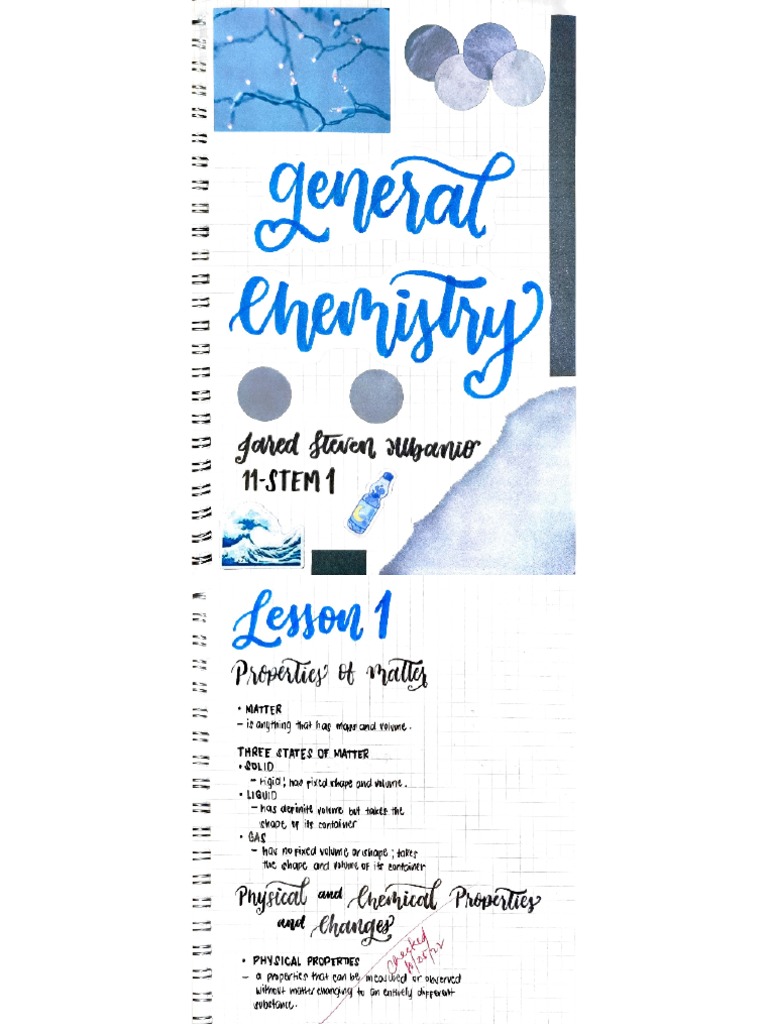 general
Chemistry
Jared Steven Albanio
11-STEM 1
Lesson 1
Properties of Matter
• MATTER
- is anything that has mass and volume.
THREE STATES OF MATTER
• SOLID
- rigid; has fixed shape and volume.
• LIQUID
- has definite volume but takes the
shape of its container
• GAS
- has no fixed volume or shape; takes
the shape and volume of its container
Physical and Chemical Properties
and Changes
Checked
• PHYSICAL PROPERTIES
- a properties that can be measured or observed
without matter changing to an entirely different
substance.